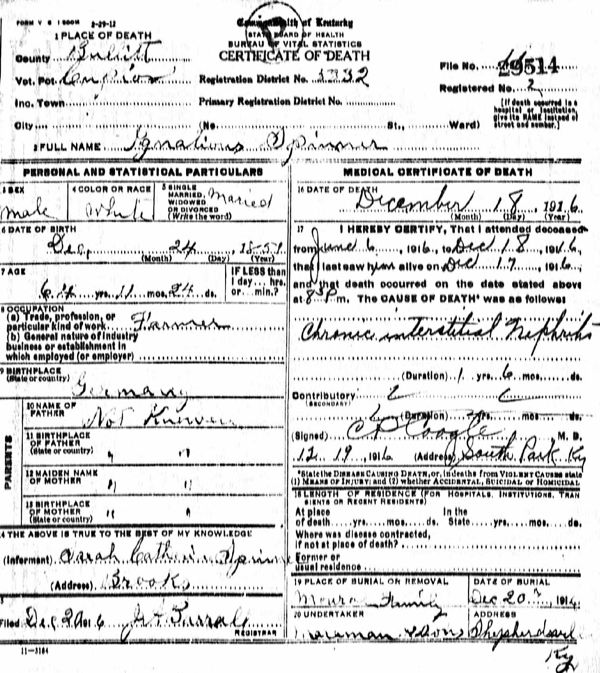 FORM V S 1 500M 2-29-12
Commonwealth of Kentucky
STATE BOARD OF HEALTH
BUREAU OF VITAL STATISTICS
CERTIFICATE OF DEATH
1 PLACE OF DEATH
County Bullitt
Vot. Pct.
Registration District No.
File No. 29514
Registered No. 2
Inc. Town Primary Registration District No.
(If death occurred in a hospital or institution, give its NAME instead of street and number.)
City (No. St., Ward)
2 FULL NAME Ignatious Spinner
PERSONAL AND STATISTICAL PARTICULARS
3 SEX male
4 COLOR OR RACE White
5 SINGLE MARRIED, WIDOWED OR DIVORCED (Write the word) Married
6 DATE OF BIRTH
Dec, 24
(Month) (Day) (Year)
7 AGE
yrs. 11 mos. 24 ds.
IF LESS than 1 day ... hrs. or ... min.?
8 OCCUPATION
(a) Trade, profession, or particular kind of work Farmer
(b) General nature of industry business or establishment in which employed (or employer)
9 BIRTHPLACE
(State or country) Germany
PARENTS
10 NAME OF FATHER Not Known
11 BIRTHPLACE OF FATHER (State or country) " "
12 MAIDEN NAME OF MOTHER " "
13 BIRTHPLACE OF MOTHER (State or country) " "
14 THE ABOVE IS TRUE TO THE BEST OF MY KNOWLEDGE
(Informant) Sarah Catherine Spinner
(Address) Brooks
Filed Dec 20 1916
REGISTRAR
11-3184
MEDICAL CERTIFICATE OF DEATH
16 DATE OF DEATH
December 18, 1916
(Month) (Day) (Year)
17 I HEREBY CERTIFY, That I attended deceased
from June 6, 1916, to Dec 18, 1916
that I last saw him alive on Dec 17, 1916
and that death occurred on the date stated above
at 8 P m. The CAUSE OF DEATH* was as follows:
Chronic interstitial Nephritis
(Duration) 1 yrs. 6 mos. ds.
Contributory
(SECONDARY)
(Duration) yrs. mos. ds.
(Signed) Coogle M. D.
12, 19, 1916 (Address) South Park Ky
*State the DISEASE CAUSING DEATH, or, in deaths from VIOLENT CAUSES state (1) MEANS OF INJURY; and (2) whether ACCIDENTAL, SUICIDAL or HOMICIDAL
18 LENGTH OF RESIDENCE (FOR HOSPITALS, INSTITUTIONS, TRANSIENTS OR RECENT RESIDENTS)
At place of death yrs. mos. ds. In the State yrs. mos. ds.
Where was disease contracted, if not at place of death?
Former or usual residence
19 PLACE OF BURIAL OR REMOVAL
Family
DATE OF BURIAL
Dec 20, 1916
20 UNDERTAKER
& Sons
ADDRESS
Shepherdsville
Ky